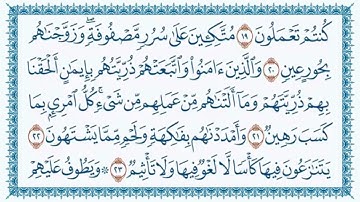 كُنتُمْ تَعْمَلُونَ ١٩ مُتَّكِـِٔينَ عَلَىٰ سُرُرٍ مَّصْفُوفَةٍ ۖ وَزَوَّجْنَٰهُم
بِحُورٍ عِينٍ ٢٠ وَالَّذِينَ ءَامَنُوا۟ وَاتَّبَعَتْهُمْ ذُرِّيَّتُهُم بِإِيمَٰنٍ أَلْحَقْنَا
بِهِمْ ذُرِّيَّتَهُمْ وَمَآ أَلَتْنَٰهُم مِّنْ عَمَلِهِم مِّن شَىْءٍ ۚ كُلُّ امْرِئٍۭ بِمَا
كَسَبَ رَهِينٌ ٢١ وَأَمْدَدْنَٰهُم بِفَٰكِهَةٍ وَلَحْمٍ مِّمَّا يَشْتَهُونَ ٢٢
يَتَنَٰزَعُونَ فِيهَا كَأْسًا لَّا لَغْوٌ فِيهَا وَلَا تَأْثِيمٌ ٢٣ ۞ وَيَطُوفُ عَلَيْهِمْ